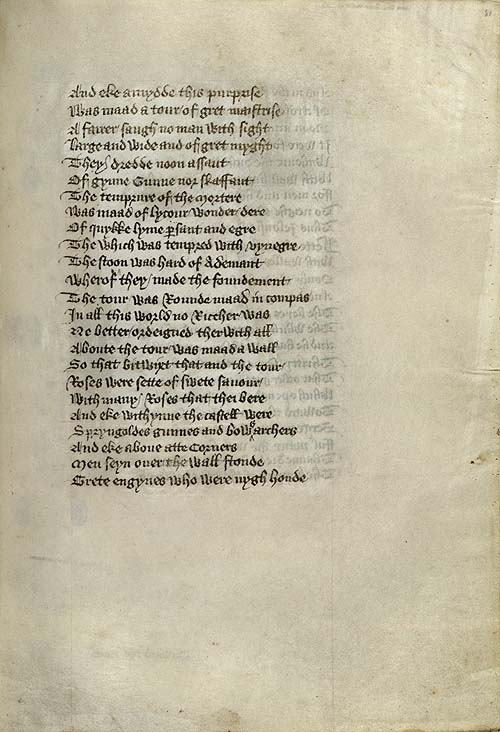 And eke amydde this purprise
Was maad a tour of gret maistrise
A fairer saugh no man with sight
Large and wide and of gret myght
They dredde noon assaut
Of gynne Gunne nor skaffaut
The temprure of the mortere
Was maad of lycour wonder dere
Of quykke lyme persant and egre
The which was tempred with vynegre
The stoon was hard of Ademant
Wherof they made the foundement
The tour was Rounde maad in compas
In all this world no Richer was
Ne better ordeigned therwith all
Aboute the tour was maad a wall
So that bitwixt that and the tour
Roses were sette of swete sauour
With many Roses that thei bere
And eke withynne the castell were
Spryngoldes gunnes and bows archers
And eke aboue atte Corners
Men seyn ouer the wall stonde
Grete engynes who were nygh honde